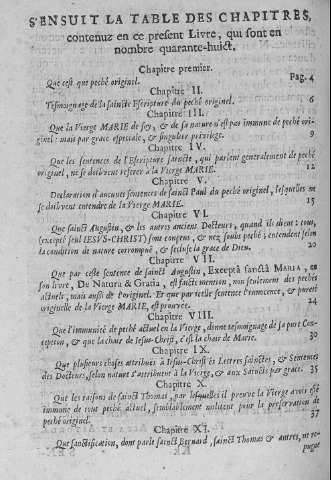 S'ENSUIT LA TABLE DES CHAPITRES,
contenuz en ce present Livre, qui sont en
nombre quarante-huict.
Chapitre premier.
Que c'est que peché originel. Pag. 4
Chapitre II.
Tesmoignage de la saincte Escripture du peché originel. 6
Chapitre III.
Que la Vierge MARIE de soy, & de sa nature n'est pas immune de peché ori-
ginel: mais par grace especiale, & singulier privilege. 9
Chapitre IV.
Que les sentences de l'Escripture saincte, qui parlent generalement de peché
originel, ne se doibvent referer à la Vierge MARIE. 12
Chapitre V.
Declaration d'aucunes sentences de sainct Paul du peché originel, lesquelles ne
se doibvent entendre de la Vierge MARIE. 15
Chapitre VI.
Que sainct Augustin, & les autres ancient Docteurs, quand ils dient: tous,
(excepté seul IESVS-CHRIST) sont conçeus, & nez soubs peché; entendent selon
la condition de nature corrompuë, & secluse la grace de Dieu. 20
Chapitre VII.
Que par ceste sentence de sainct Augustin, Exceptâ sanctâ MARIA, en
son livre, De Natura & Gratia, est faicte mention, non seulement des pechés
actuels, mais aussi de l'originel. Et que par telle sentence l'innocence, & pureté
originelle de la Vierge MARIE, est prouvée. 24
Chapitre VIII.
Que l'immunité de peché actuel en la Vierge, donne tesmoignage de sa pure Con-
ception, & que la chair de Jesus-Christ, c'est la chair de Marie. 30
Chapitre IX.
Que plusieurs choses attribuées à Jesus-Christ és Lettres sainctes, & Sentences
des Docteurs, selon nature s'attribuent à la Vierge, & aux Saincts par grace. 35
Chapitre X.
Que les raisons de sainct Thomas, par lesquelles il preuve la Vierge avoir esté
immune de tout peché actuel, semblablement militent pour la preservation de
peché originel. 37
Chapitre XI.
Que sanctification, dont parle sainct Bernard, sainct Thomas & autres, ne re-
pugne